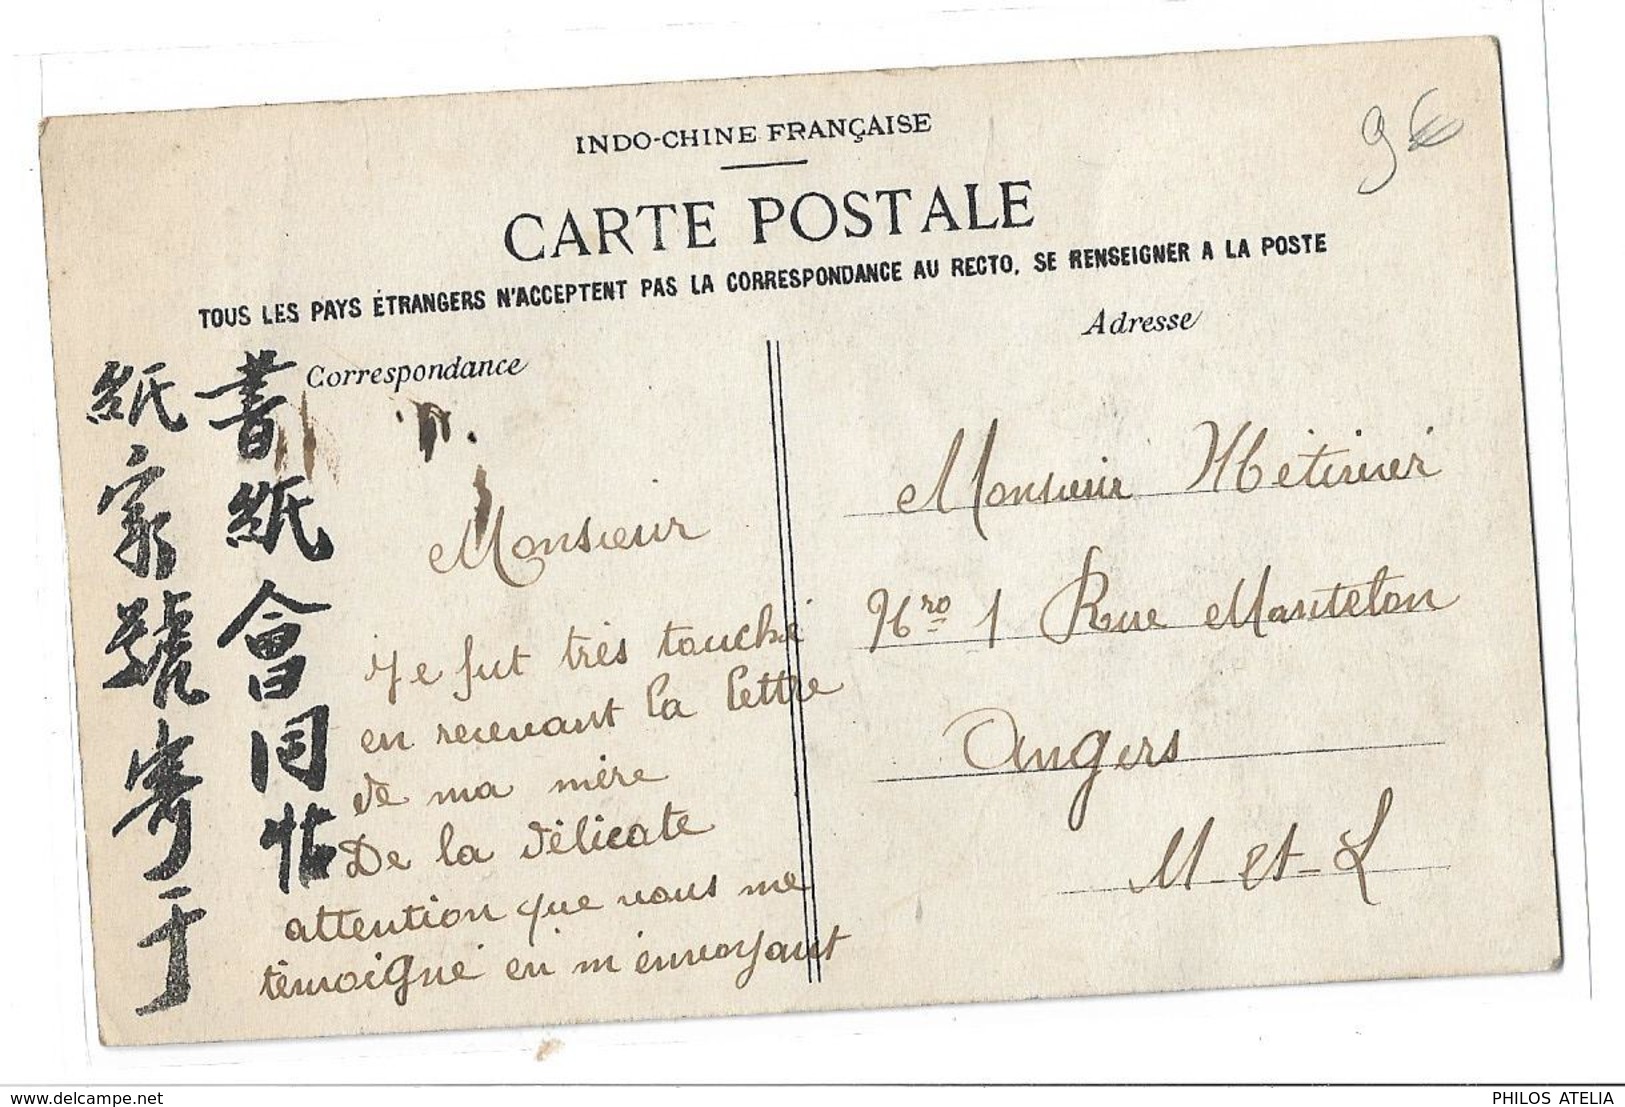 INDO-CHINE FRANÇAISE
CARTE POSTALE
TOUS LES PAYS ÉTRANGERS N'ACCEPTENT PAS LA CORRESPONDANCE AU RECTO, SE RENSEIGNER A LA POSTE
Correspondance
Adresse
9€
書紙會同帖
紙家號寄于
Monsieur
Je fut très touché
en recevant la lettre
de ma mère
De la délicate
attention que vous me
témoigné en m'envoyant
Monsieur Métivier
Nro 1 Rue Mantelon
Angers
M et L
www.delcampe.net
PHILOS ATELIA